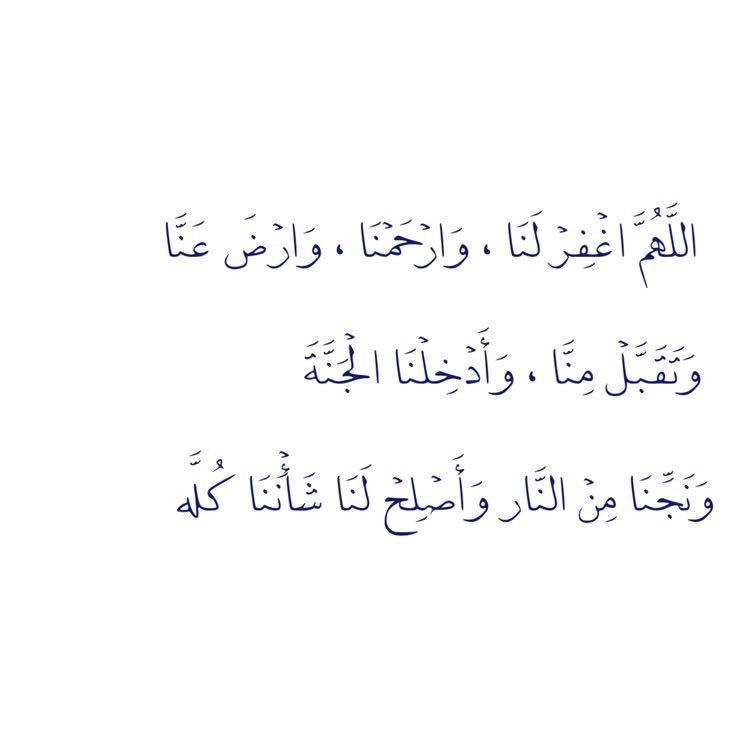 اللَّهُمَّ اغْفِرْ لَنَا ، وَارْحَمْنَا ، وَارْضَ عَنَّا
وَتَقَبَّلْ مِنَّا ، وَأَدْخِلْنَا الْجَنَّةَ
وَنَجِّنَا مِنْ النَّار وَأَصْلِحْ لَنَا شَأْنَنَا كُلَّه